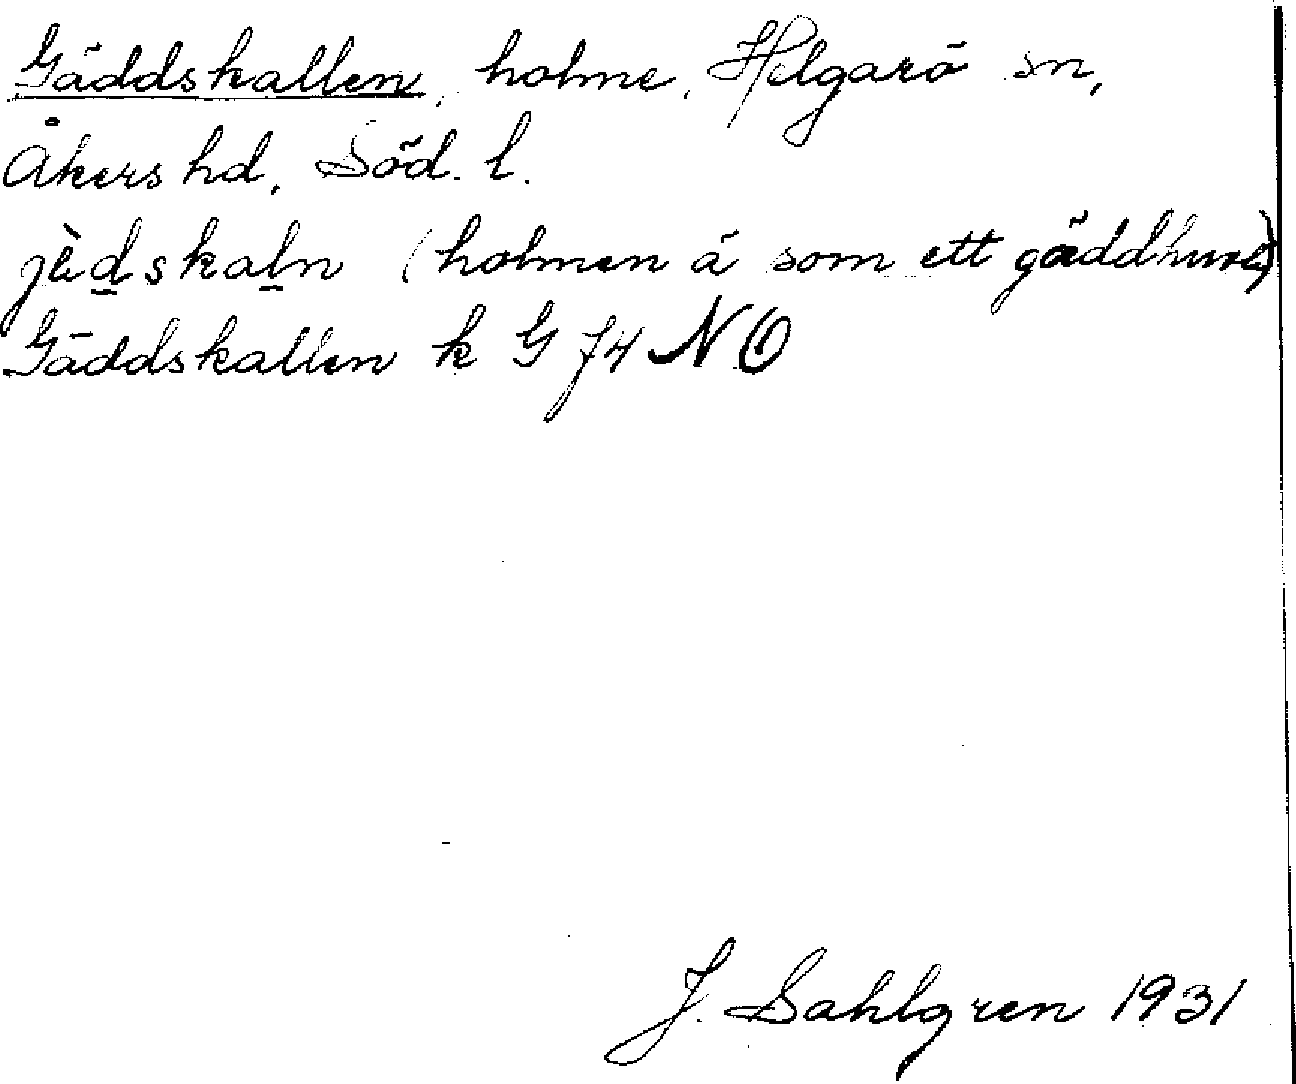 Gäddskallen, holme, Helgarö sn,
Åkers hd, Söd. l.
jèdskaln (holmen ä som ett gäddhuvu)
Gäddskallen k G 74 NO
J. Sahlgren 1931